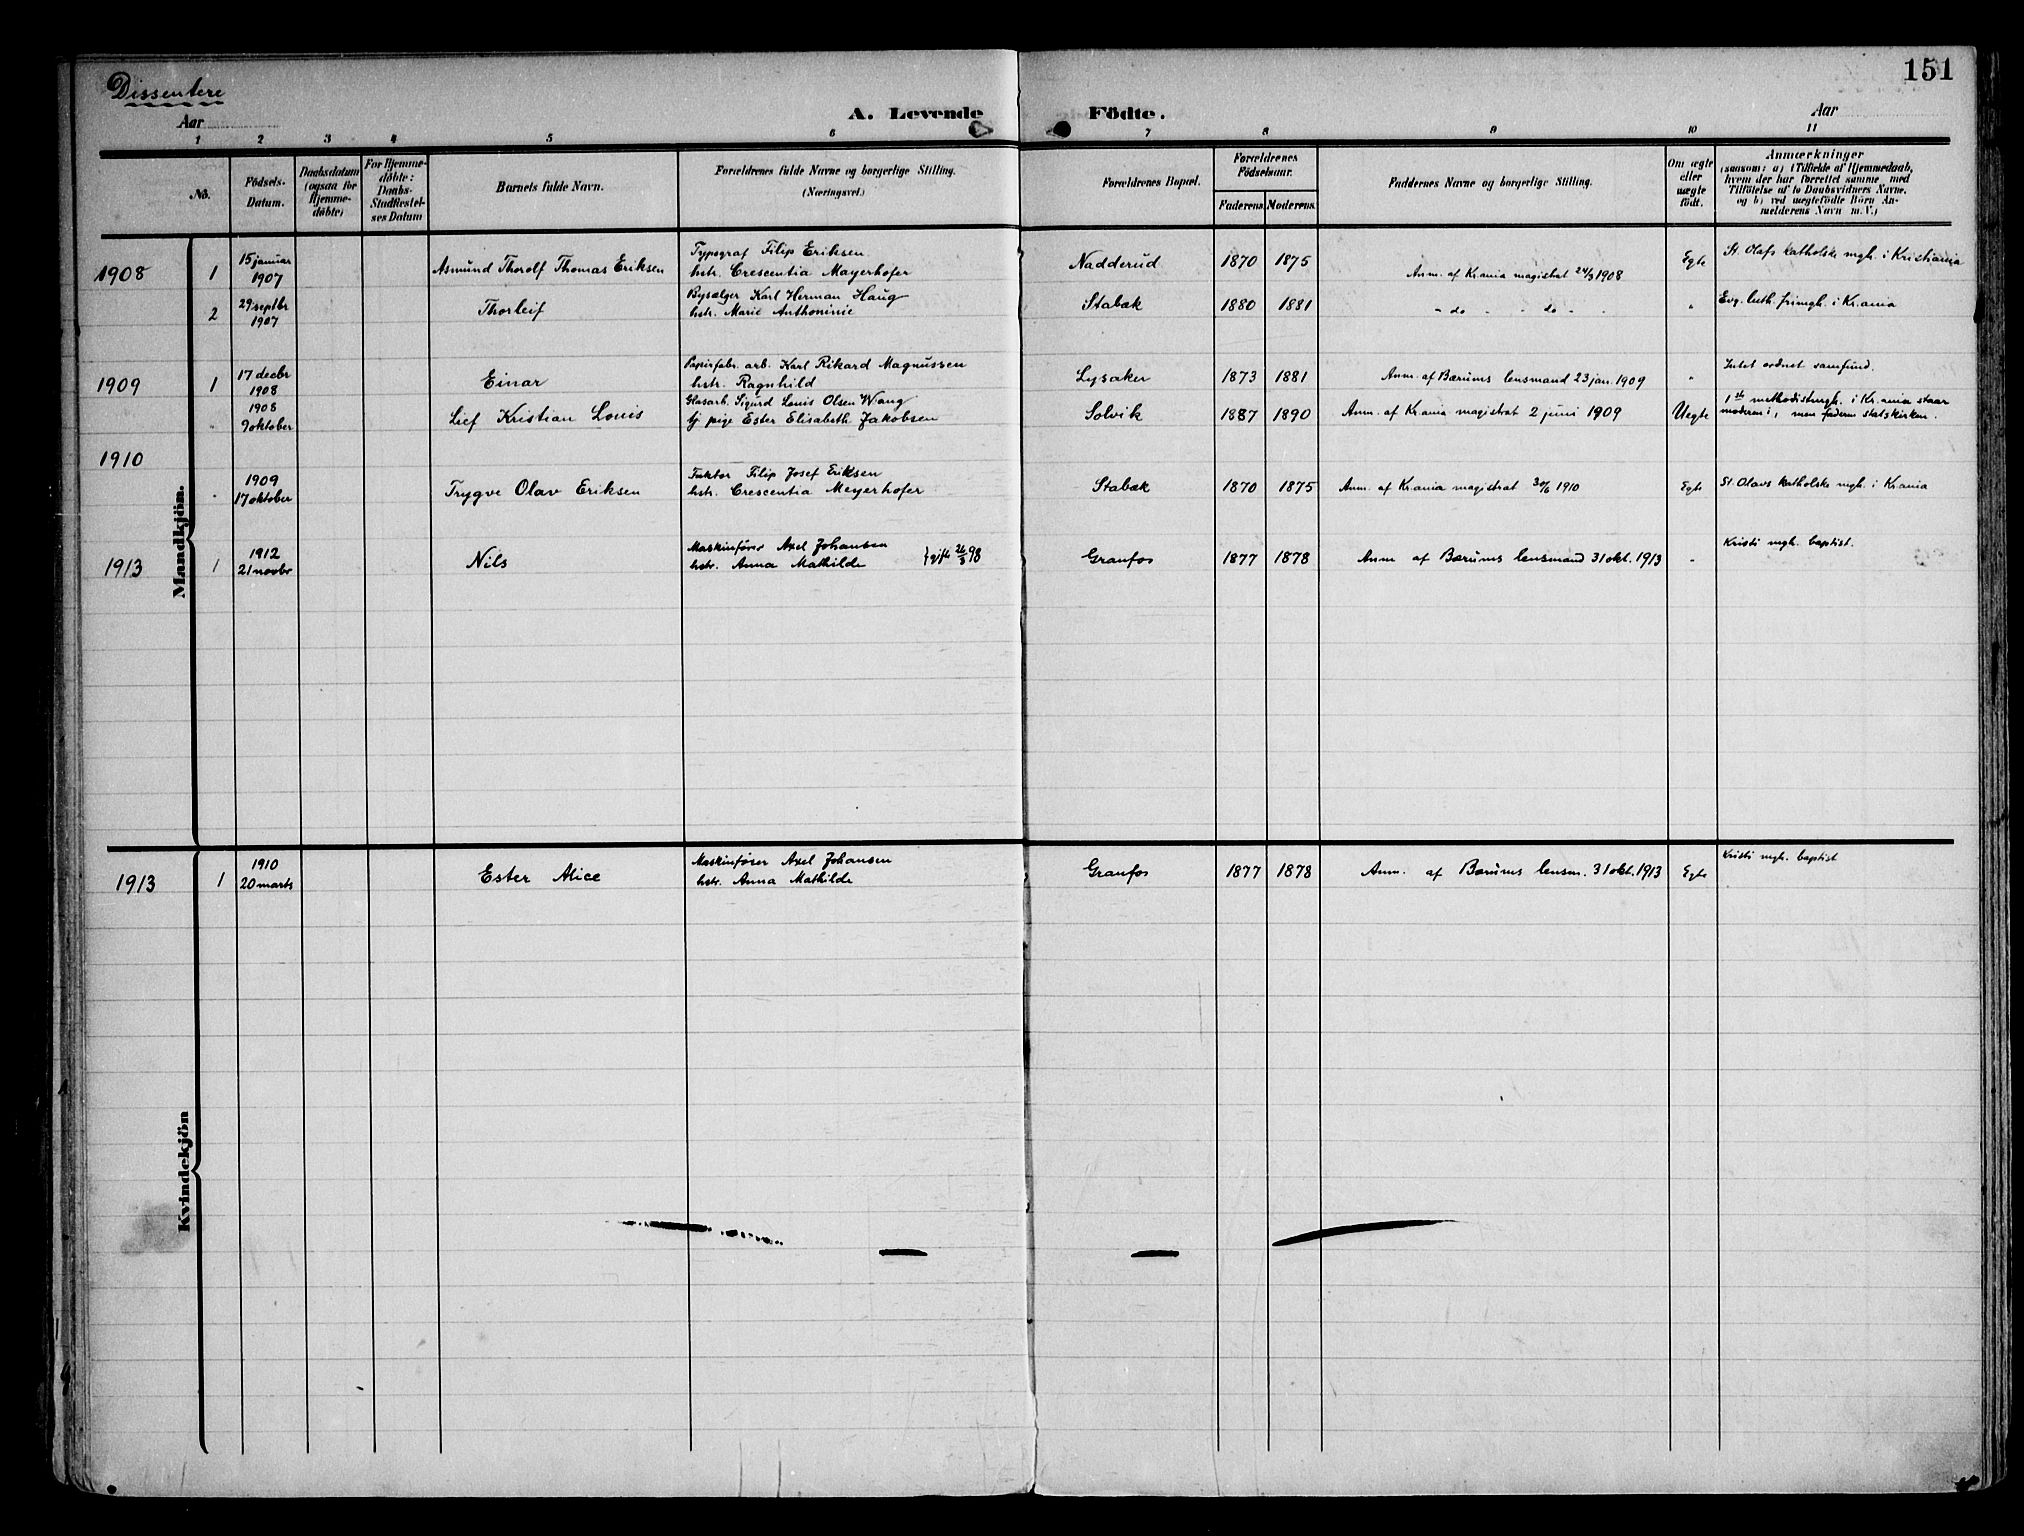 151
Dissentere
Aar
A. Levende Födte.
Aar
1 2 3 4 5 6 7 8 9 10 11
No.
Födsels-
Datum.
Daabsdatum
(ogsaa for
Hjemme-
döbte)
For Hjemme-
döbte:
Daabs-
Stadfæstel-
ses Datum
Barnets fulde Navn.
Forældrenes fulde Navne og borgerlige Stilling.
(Næringsvei.)
Forældrenes Bopæl.
Forældrenes
Födselsaar.
Faderens. Moderens.
Faddernes Navne og borgerlige Stilling.
Om ægte
eller
uægte
födt.
Anmærkninger
(saasom: a) i Tilfælde af Hjemmedaab,
hvem der har forrettet samme, med
Tilföielse af to Daabsvidners Navne,
og b) ved uægtefödte Börn An-
melderens Navn m.V.)
Mandkjön.
1908 1 15 januar 1907 Asmund Thorolf Thomas Eriksen Typograf Filip Eriksen
hstr. Crescentia Mayerhofer Nadderud 1870 1875 Anm. af Kr.ania magistrat 24/3 1908 Egte St. Olafs katholske mgh. i Kristiania
2 29 septbr 1907 Thorleif Bysælger Karl Herman Haug
hstr. Marie Anthoninie Stabæk 1880 1881 " do " " do " " Evg. luth. frimgh. i Kr.ania
1909 1 17 decbr 1908 Einar Papirfabr. arb. Karl Rikard Magnussen
hstr. Ragnhild Lysaker 1873 1881 Anm. af Bærums lensmand 23 jan. 1909 " Intet ordnet samfund.
" 1908 9 oktober Lief Kristian Louis Glasarb. Sigurd Louis Olsen Wang
tj. pige Ester Elisabeth Jakobsen Solvik 1887 1890 Anm. af Kr.ania magistrat 2 juni 1909 Uegte 1ste methodistmgh. i Kr.ania staar
moderen i, men faderen statskirken.
1910
" 1909 17 oktober Trygve Olav Eriksen Faktor Filip Josef Eriksen
hstr. Crescentia Meyerhofer Stabæk 1870 1875 Anm. af Kr.ania magistrat 30/6 1910 Egte St. Olavs katholske mgh. i Kr.ania
1913 1 1912 21 novbr Nils Maskinfører Axel Johansen
hstr. Anna Mathilde } gift 26/3 98 Granfos 1877 1878 Anm af Bærums lensmand 31 okt. 1913 " Kristi mgh. baptist.
Kvindekjön
1913 1 1910 20 marts Ester Alice Maskinfører Axel Johansen
hstr. Anna Mathilde Granfos 1877 1878 Anm. af Bærums lensm. 31 okt. 1913 Egte Kristi mgh. baptist